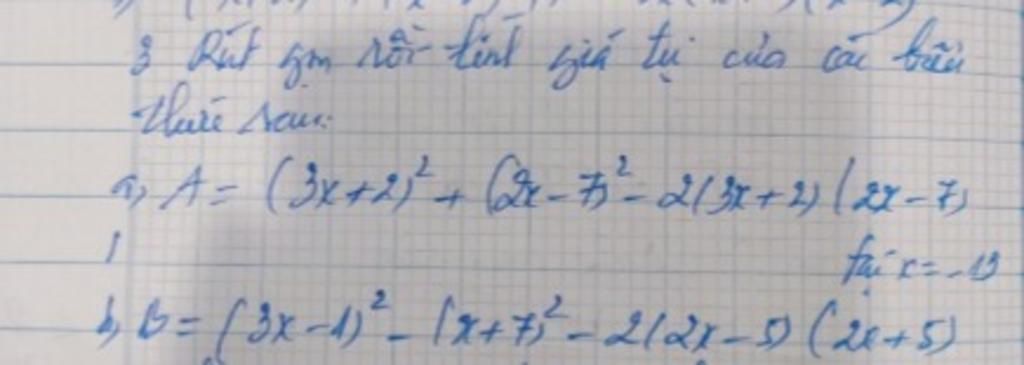 3 Rút gọn rồi tính giá trị của các biểu
thức sau:
a, A = (3x+2)² + (2x-7)² - 2(3x+2)(2x-7)
tại x = -13
b, B = (3x-1)² - (x+7)² - 2(2x-5)(2x+5)